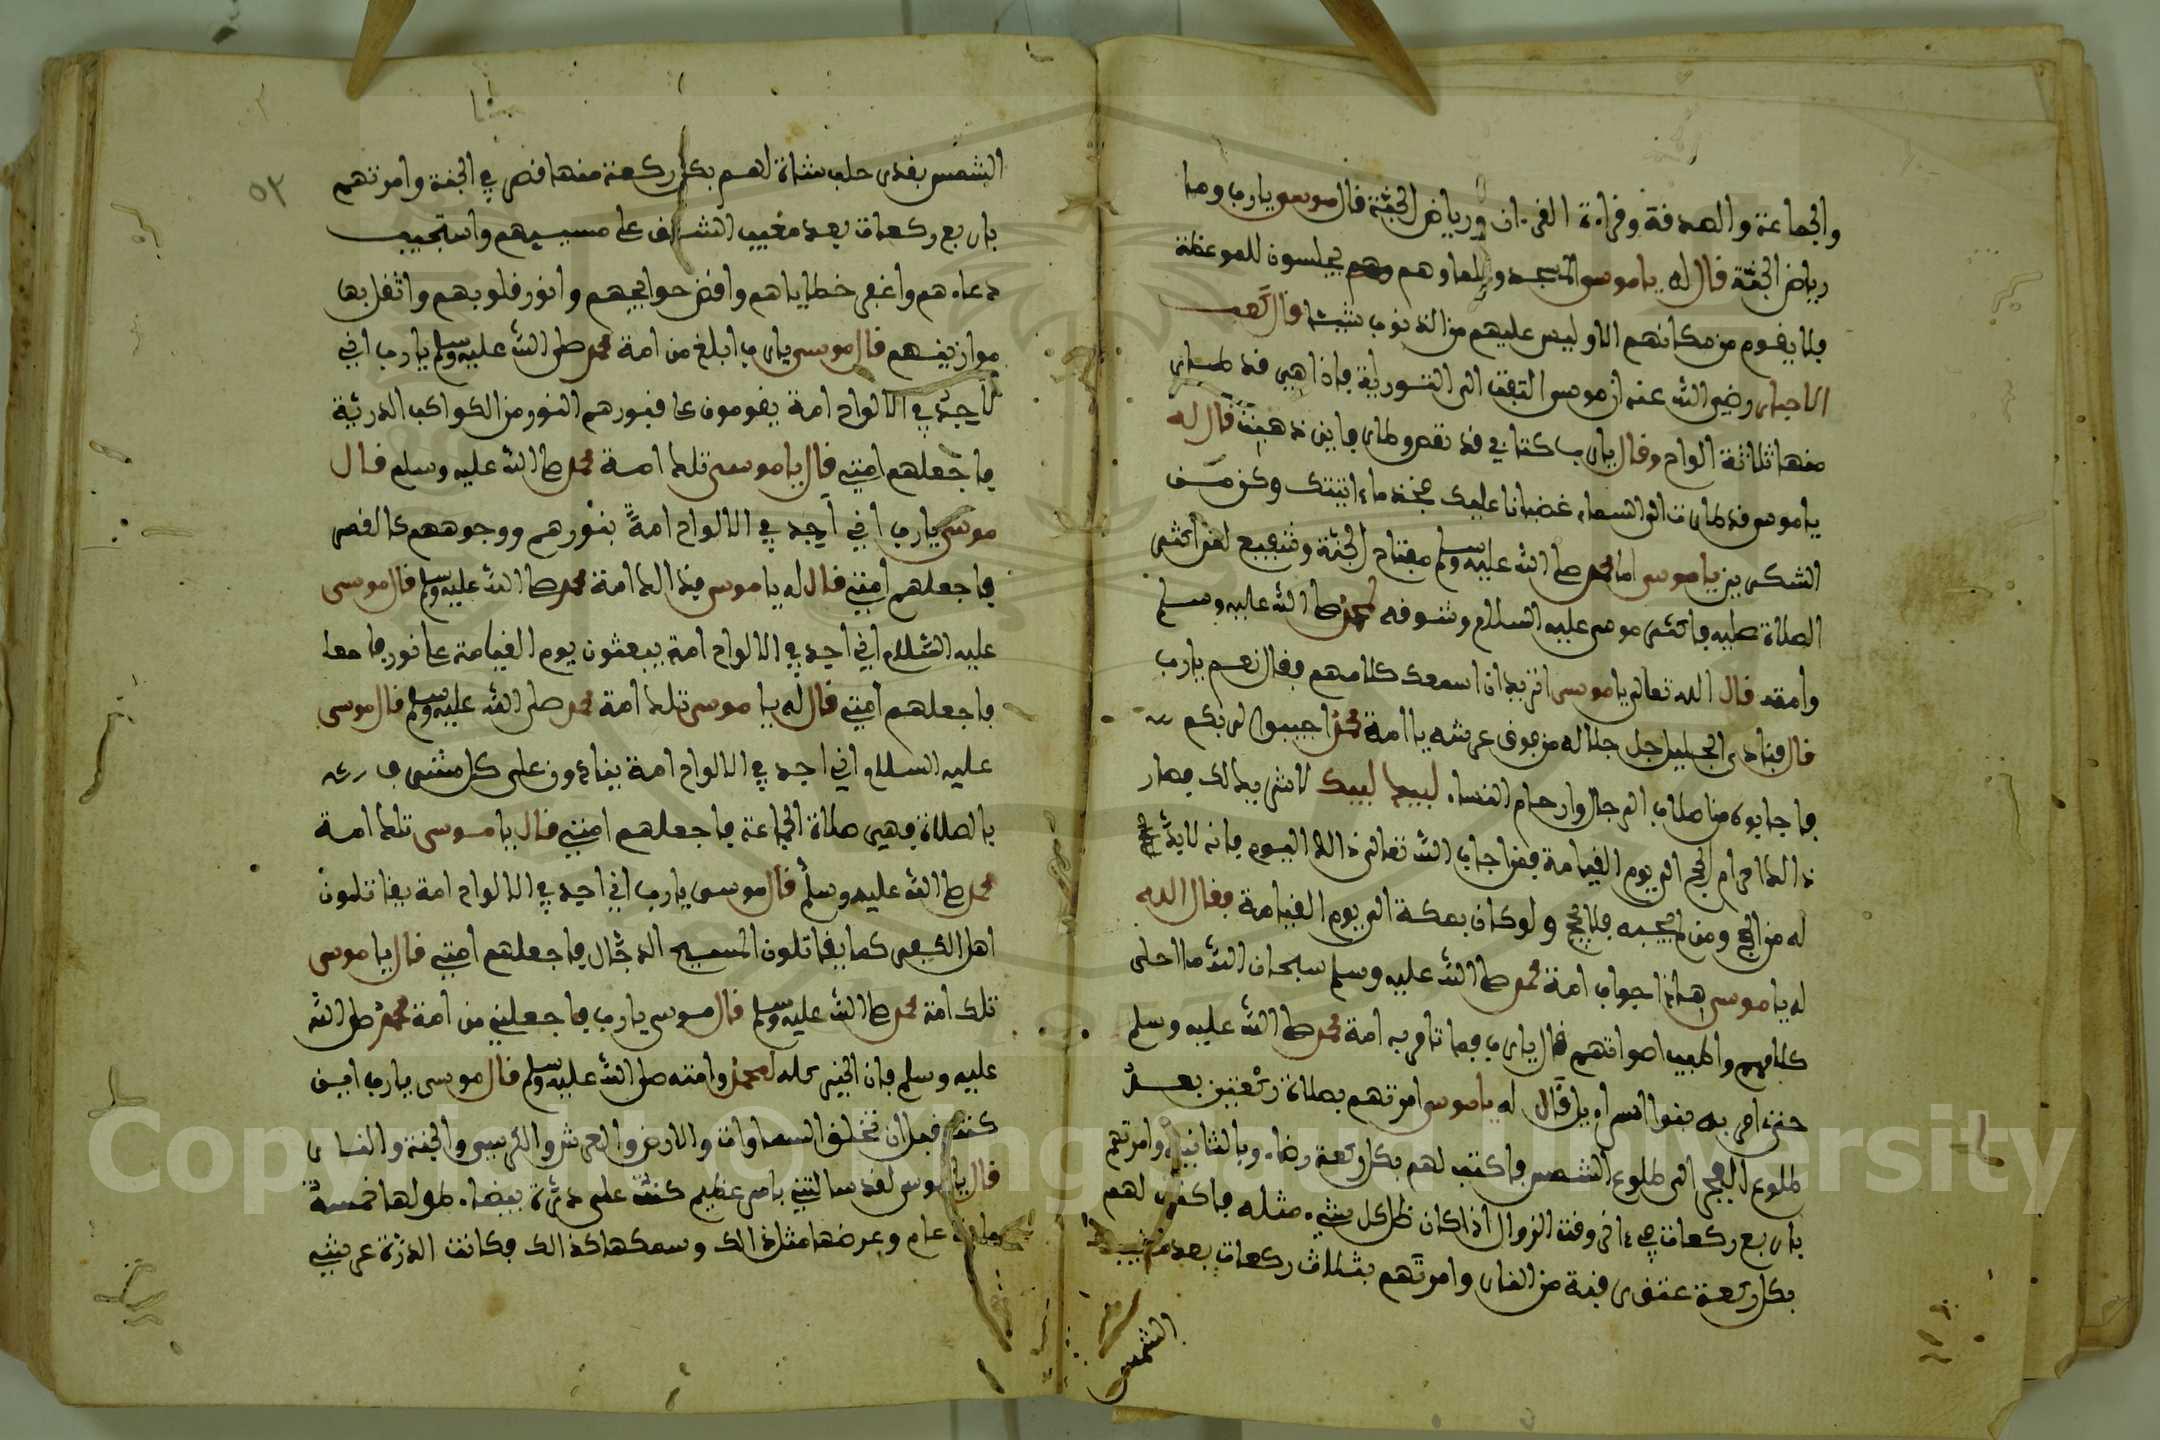 والجماعة والصدقة وقراءة القرءان ورياض الجنة قال موسى يارب وما
رياض الجنة قال له ياموسى المسجد والعلماء وهم يجلسون للموعظة
فلا يقوم من مكانهم الا وليس عليهم من الذنوب شيئا قال كعب
الاحبار رضي الله عنه ان موسى التفت الى التورية فاذا هي قد طارت
منها ثلاثة الواح وقال يارب كتابي قد نقص وطار فاين ذهبت قال له
ياموسى قد طارت الى السماء غضبانا عليك فخذ ما ءاتيتك وكن من
الشكرين ياموسى اما محمد صلى الله عليه وسلم مفتاح الجنة وشفيع لمن اكثر
الصلاة عليه فاكثر موسى عليه السلام وشوقه لمحمد صلى الله عليه وسلم
وامته قال الله تعالى ياموسى اتريد ان اسمعك كلامهم فقال نعم يارب
قال فنادى الجليل جل جلاله من فوق عرشه يا امة محمد اجيبوا لربكم
فاجابوه من اصلاب الرجال وارحام النساء لبيك لبيك لا شريك لك فصار
ذالك احرام الحج الى يوم القيامة فمن اجاب الله تعالى ذالك اليوم فانه لابد
له من الحج ومن لم يجبه فلا يحج ولو كان بمكة الى يوم القيامة فقال الله
له ياموسى هاذا جواب امة محمد صلى الله عليه وسلم سبحان الله ما احلى
كلامهم واطيب اصواتهم قال يارب فما تامر به امة محمد صلى الله عليه وسلم
حتى امر به بنوا اسراويل قال له ياموسى امرتهم بصلاة ركعتين بعد
طلوع الفجر الى طلوع الشمس فاكتب لهم بكل ركعة رضاء وبالثانية وامرتهم
باربع ركعات في ءاخر وقت الزوال اذا كان ظل كل شيء مثله فاكتب لهم
بكل ركعة عتق رقبة من النار وامرتهم بثلاث ركعات بعد مغيب
الشمس
٥٣
الشمس بقدر حلب شاة لهم بكل ركعة منها قصر في الجنة وامرتهم
باربع ركعات بعد مغيب الشفق على مسيرهم واستجيب
دعاءهم واغفر خطاياهم واقض حوايجهم وانور قلوبهم واثقل بها
موازينهم قال موسى يارب ابلغ من امة محمد صلى الله عليه وسلم يارب اني
لاجد في الالواح امة يقومون على قبورهم النور من الكواكب الدرية
فاجعلهم امتي قال ياموسى تلك امة محمد صلى الله عليه وسلم قال
موسى يارب اني اجد في الالواح امة بنورهم ووجوههم كالقمر
فاجعلهم امتي قال له ياموسى فذالك امة محمد صلى الله عليه وسلم قال موسى
عليه السلام اني اجد في الالواح امة يبعثون يوم القيامة على نور
فاجعلهم امتي قال له يا موسى تلك امة محمد صلى الله عليه وسلم قال موسى
عليه السلام اني اجد في الالواح امة ينادون على كل
بالصلاة وهي صلاة الجماعة فاجعلهم امتي قال ياموسى تلك امة
محمد صلى الله عليه وسلم قال موسى يارب اني اجد في الالواح امة يقاتلون
اهل الكفر كما يقاتلون المسيح الدجال فاجعلهم امتي قال ياموسى
تلك امة محمد صلى الله عليه وسلم قال موسى يارب فاجعلني من امة محمد صلى الله
عليه وسلم فان الخير كله لمحمد وامته صلى الله عليه وسلم قال موسى يارب اين
كنت قبل ان تخلق السماوات والارض والعرش والكرسي والجنة والنار
قال ياموسى لقد سالتني بامر عظيم كنت على درة بيضاء طولها خمسة
مائة عام وعرضها مثل ذالك وسمكها كذالك فكانت الدرة عرشي
Copyright © King Saud University